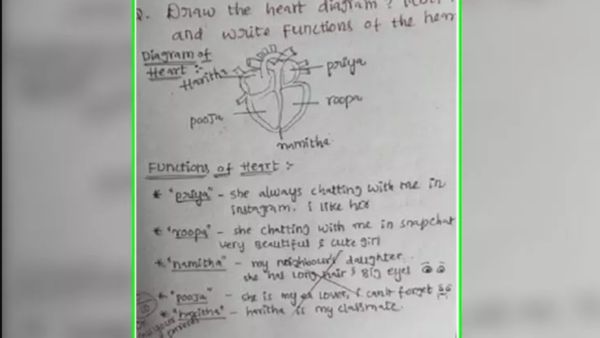 Draw the heart diagram?
and write Functions of the
Diagram of
Heart :-
Haritha
priya
pooja
roopa
namitha
Functions of Heart :-
* "priya" - she always chatting with me in
instagram. i like her
* "roopa" - she chatting with me in snapchat
very Beautiful & cute girl
* "namitha" - my neighbour's daughter.
she has long hair & Big eyes
* "pooja" - she is my ex lover, i can't forget
* "haritha" - haritha is my classmate.